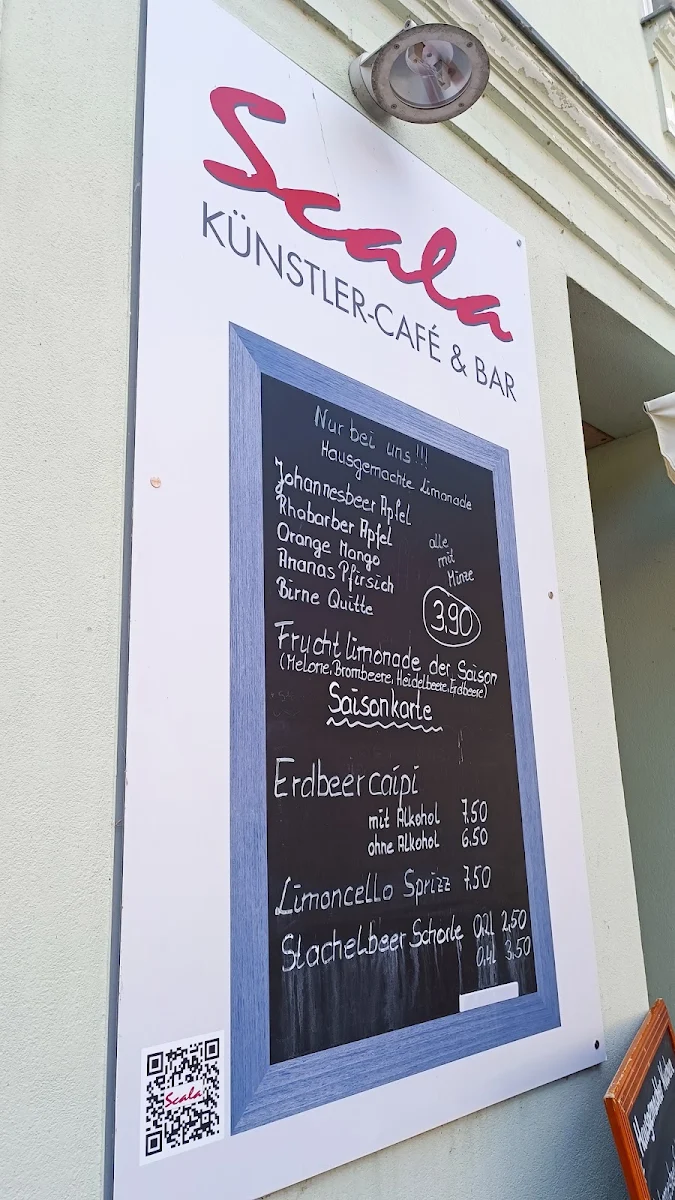 Scala
KÜNSTLER-CAFÉ & BAR
Nur bei uns!!!
Hausgemachte Limonade
Johannesbeer Apfel
Rhabarber Apfel
Orange Mango
Ananas Pfirsich
Birne Quitte
alle
mit
Minze
3,90
Frucht limonade der Saison
(Melone, Brombeere, Heidelbeere, Erdbeere)
Saisonkarte
Erdbeer caipi
mit Alkohol 7.50
ohne Alkohol 6.50
Limoncello Sprizz 7.50
Stachelbeer Schorle 0,2l 2,50
0,4l 3,50
Scala
Hausgemachte